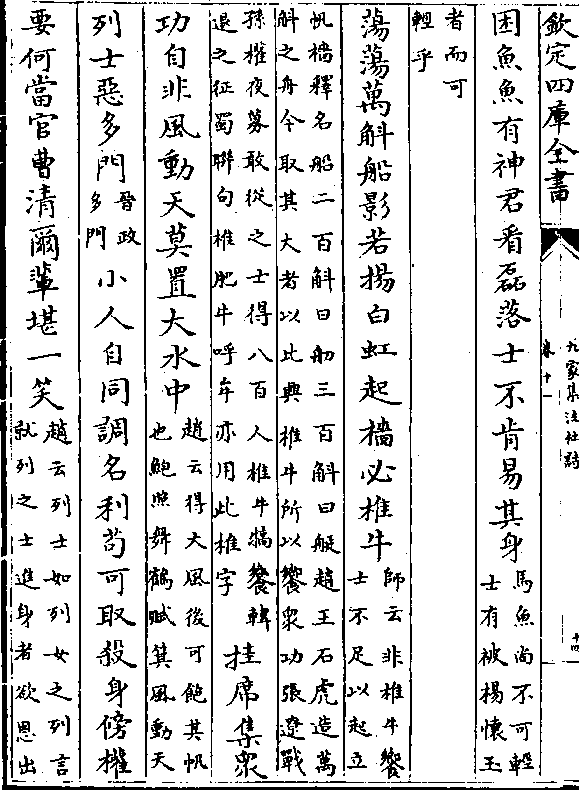 欽定四庫全書
九家集注杜詩
卷十一
十四
困魚魚有神君看磊落士不肯易其身
馬魚尚不可輕
士有被楊懷玉
者而可
輕乎
蕩蕩萬斛船影若揚白虹起檣必椎牛
師云非椎牛饗
士不足以起立
帆檣釋名船二百斛曰舠三百斛曰艇趙王石虎造萬
斛之舟今取其大者以比興椎牛所以饗衆功張遼戰
孫權夜募敢從之士得八百人椎牛犒饗韓
退之征蜀聯句椎肥牛呼牟亦用此椎字
挂席集衆
功自非風動天莫置大水中
趙云得大風後可飽其帆
也鮑照舞鶴賦箕風動天
列士惡多門
晉政
多門
小人自同調名利苟可取殺身傍權
要何當官曹清爾輩堪一笑
趙云列士如列女之列言
就列之士進身者欲恩出